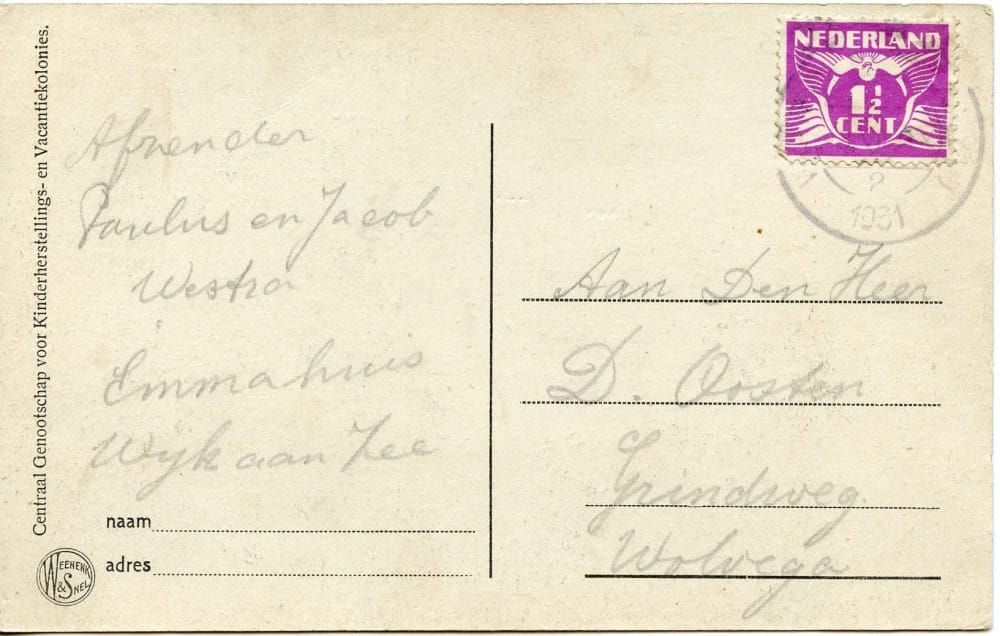 Centraal Genootschap voor Kinderherstellings- en Vacantiekolonies.
Afzender
Paulus en Jacob
Westra
Emmahuis
Wijk aan Zee
naam
adres
WEENENK & SNEL
NEDERLAND
1 1/2
CENT
2
1931
Aan Den Heer
D. Oosten
Grindweg
Wolvega